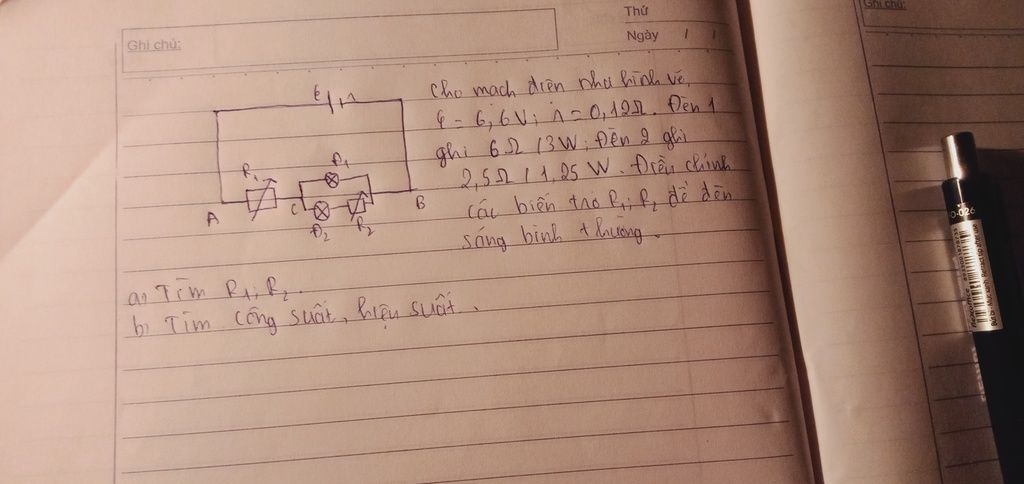 Thứ
Ngày / /
Ghi chú:
Ghi chú:
Cho mạch điện như hình vẽ,
ξ = 6,6V; r = 0,12Ω. Đèn 1
ghi 6Ω / 3W; Đèn 2 ghi
2,5Ω / 1,25 W. Điều chỉnh
các biến trở R1; R2 để đèn
sáng bình thường.
ξ r
R1
Đ1
A
C
B
Đ2
R2
a) Tìm R1; R2.
b) Tìm công suất, hiệu suất.